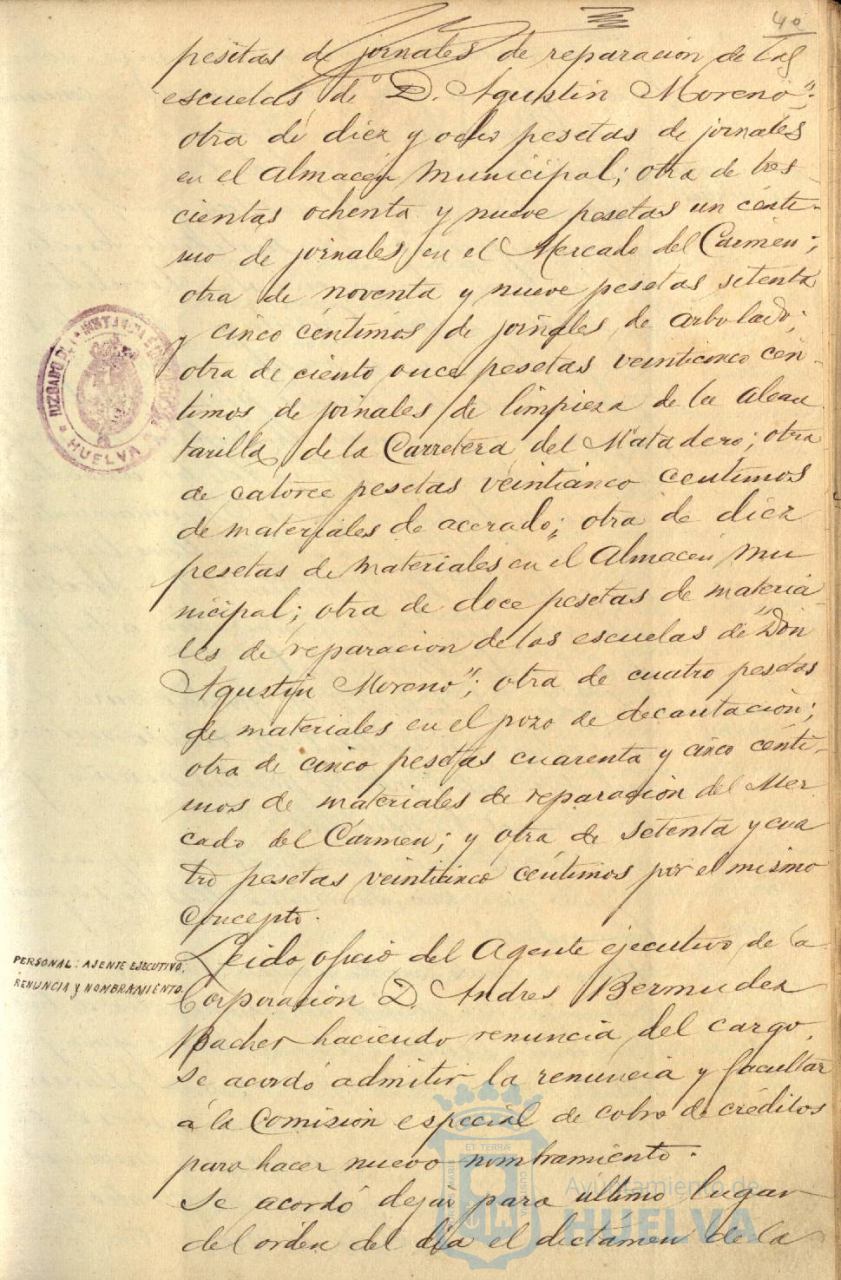 40
pesetas de jornales de reparación de las
escuelas de "D. Agustin Moreno";
otra de diez y ocho pesetas de jornales
en el Almacén Municipal; otra de tres-
cientas ochenta y nueve pesetas un cénti-
mo de jornales en el Mercado del Carmen;
otra de noventa y nueve pesetas setenta
y cinco céntimos de jornales de arbolado;
otra de ciento once pesetas veinticinco cén-
timos de jornales de limpieza de la alcan
tarilla de la Carretera del Matadero; otra
de catorce pesetas veinticinco centimos
de materiales de acerado; otra de diez
pesetas de materiales en el Almacén Mu
nicipal; otra de doce pesetas de materia
les de reparacion de las escuelas de "Don
Agustin Moreno"; otra de cuatro pesetas
de materiales en el pozo de decantación;
otra de cinco pesetas cuarenta y cinco cénti-
mos de materiales de reparación del Mer
cado del Carmen; y otra de setenta y cua
tro pesetas veinticinco céntimos por el mismo
concepto.
PERSONAL: AJENTE EJECUTIVO.
RENUNCIA y NOMBRAMIENTO.
Leido oficio del Agente ejecutivo de la
Corporación D. Andres Bermudez
Bacher haciendo renuncia del cargo,
se acordó admitir la renuncia y facultar
á la Comisión especial de cobro de créditos
para hacer nuevo nombramiento.
Se acordó dejar para último lugar
del orden del día el dictámen de la
JUZGADO DE 1ª INSTANCIA
HUELVA
Ayuntamiento de
HUELVA